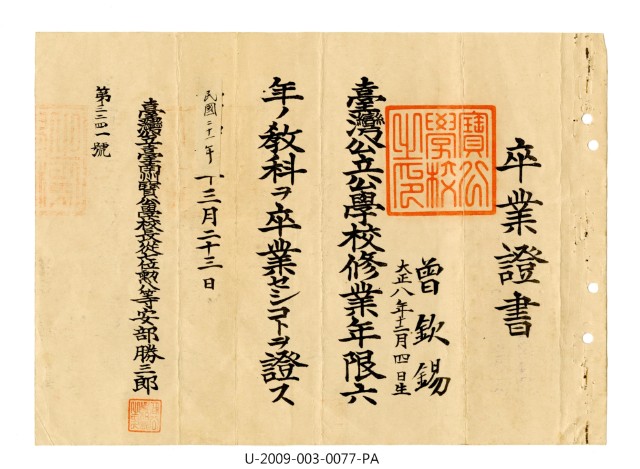 卒業證書
寶公
學校
之印
曾欽錫
大正八年十二月四日生
臺灣公立公學校修業年限六
年ノ教科ヲ卒業セシコトヲ證ス
民國二十一年三月二十三日
臺灣公立臺南州寶公學校長從七位勲等安部勝三郎
第號
U-2009-003-0077-PA